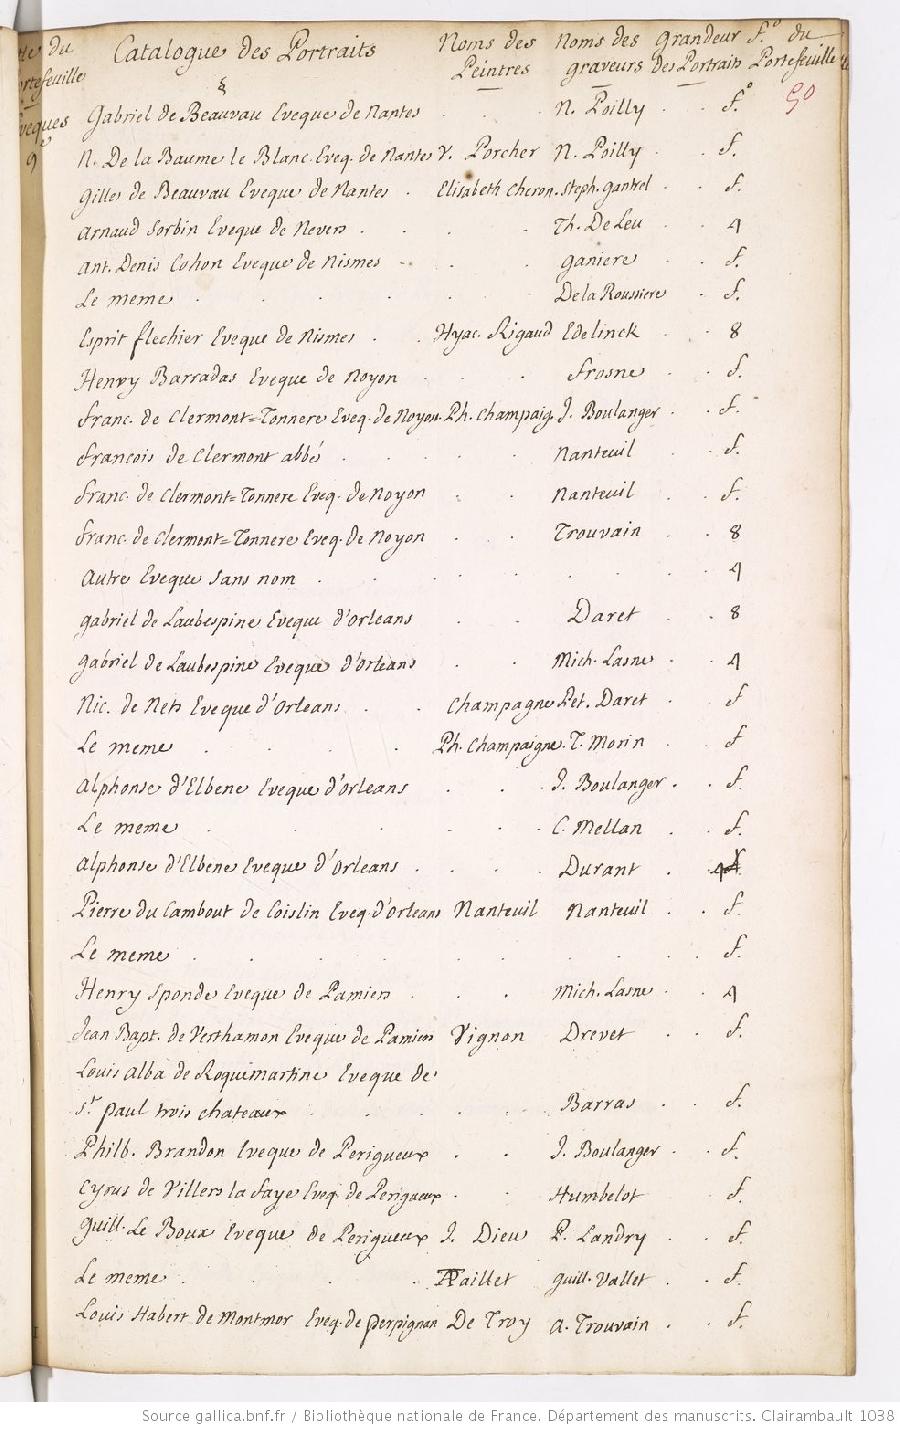 du Catalogue des Portraits Noms des Noms des Grandeur f.º du
Portefeuille § Peintres graveurs des Portraits Portefeuille
Eveques Gabriel de Beauvau Eveque de Nantes . . N. Poilly . . f.º 50
9e N. De la Baume le Blanc Eveq. de Nantes V. Porcher N. Poilly . . f.
Gilles de Beauvau Eveque de Nantes . Elisabeth Cheron. Steph. Gantrel . . f.
Arnaud Sorbin Eveque de Nevers . . . Th. De Leu . . 4
Ant. Denis Cohon Eveque de Nismes . . . ganiere . . f.
Le meme . . . . . De la Roussiere . f.
Esprit flechier Eveque de Nismes . . Hyac. Rigaud Edelinck . . 8
Henry Barradas Eveque de Noyon . . . frosne . . f.
franc. de Clermont=Tonnere Eveq. de Noyon. Ph. Champaig. J. Boulanger . . f.
francois de Clermont abbé . . . . Nanteuil . . f.
franc. de Clermont=Tonnere Eveq. de Noyon . . Nanteuil . . f.
franc. de Clermont=Tonnere Eveq. de Noyon . . Trouvain . . 8
Autre Eveque sans nom . . . . . . . 4
gabriel de Laubespine Eveque d'Orleans . . Daret . . 8
Gabriel de Laubespine Eveque d'Orleans . . Mich. Lasne . . 4
Nic. de Nets Eveque d'Orleans . . Champagne Pet. Daret . . f
Le meme . . . . Ph. Champaigne. T. Morin . . f
Alphonse d'Elbene Eveque d'Orleans . . J. Boulanger . . f.
Le meme . . . . . C. Mellan . . f.
Alphonse d'Elbene Eveque d'Orleans . . . Durant . . f.
Pierre du Cambout de Coislin Eveq. d'Orleans Nanteuil Nanteuil . . f.
Le meme . . . . . . . . . f.
Henry Sponde Eveque de Pamiers . . . Mich. Lasne . . 4
Jean Bapt. de Verthamon Eveque de Pamiers Vignon Drevet . . f.
Louis Alba de Roquimartine Eveque de
St. paul trois chateaux . . . . Barras . . f.
Philb. Brandon Eveque de Perigueux . . J. Boulanger . . f.
Cyrus de Villers la faye Eveq. de Perigueux . . Humbelot . . f.
Guill. Le Boux Eveque de Perigueux J. Dieu P. Landry . . f.
Le meme . . . . Paillet Guill. Vallet . . f.
Louis Habert de Montmor Eveq. de perpignan De Troy A. Trouvain . . f.
Source gallica.bnf.fr / Bibliothèque nationale de France. Département des manuscrits. Clairambault 1038